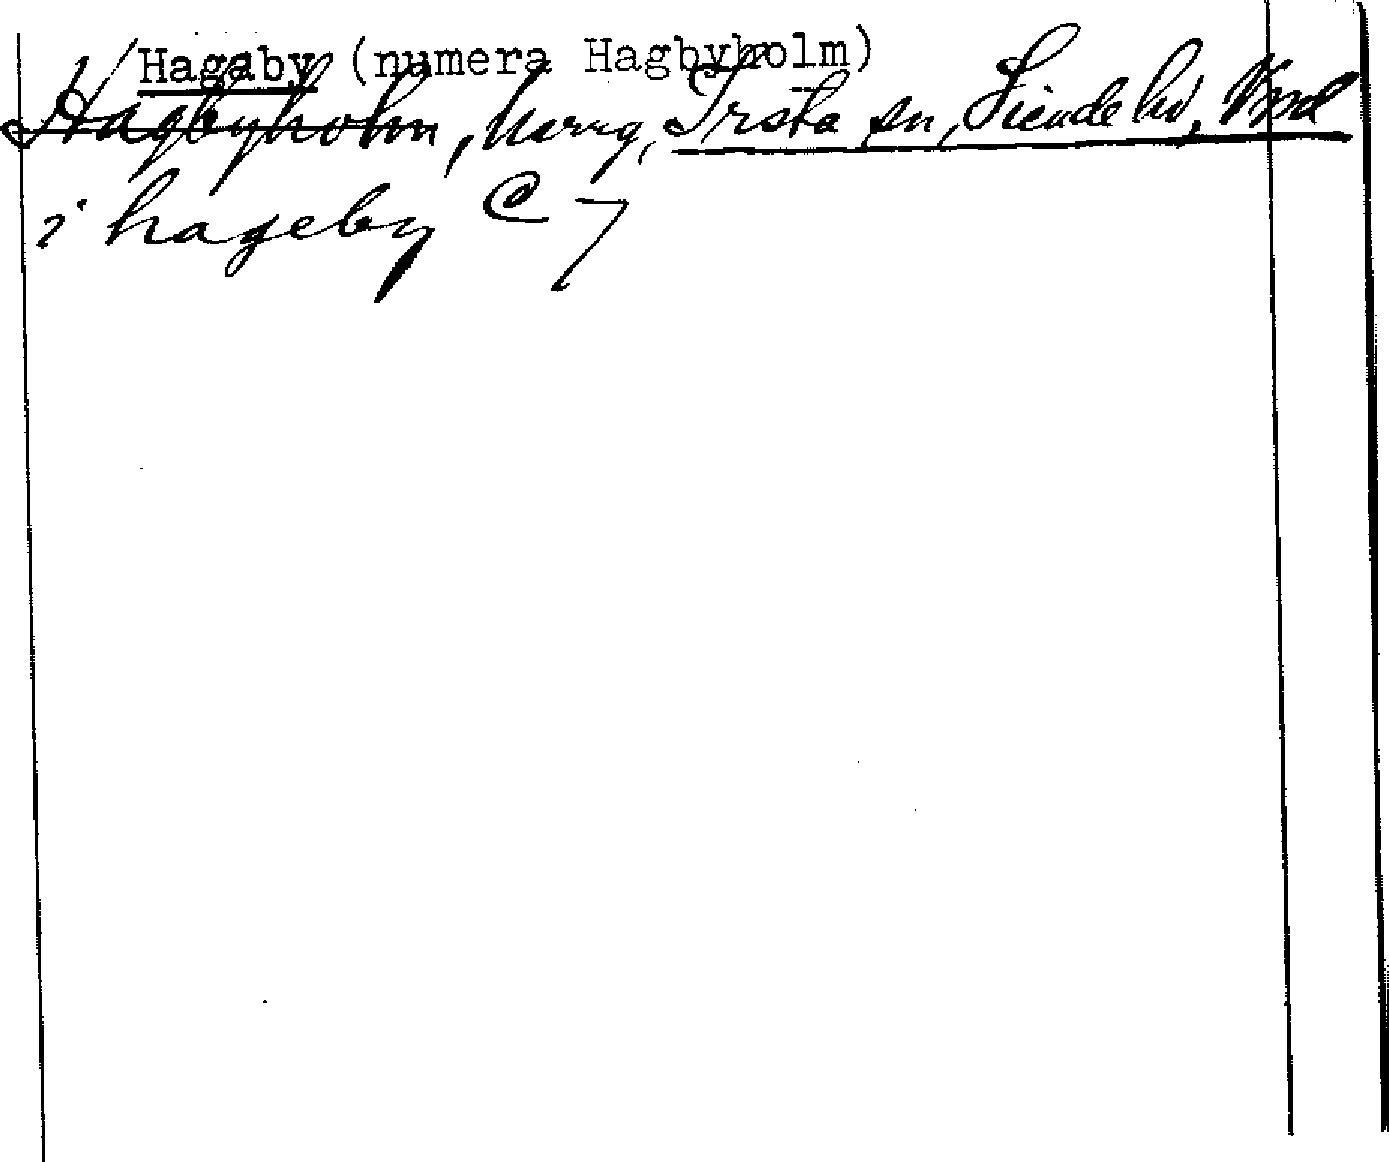 Hagaby (numera Hagbyholm)
Hagbyholm, herrg, Irsta sn, Siende hd, Vml
i hageby C 7